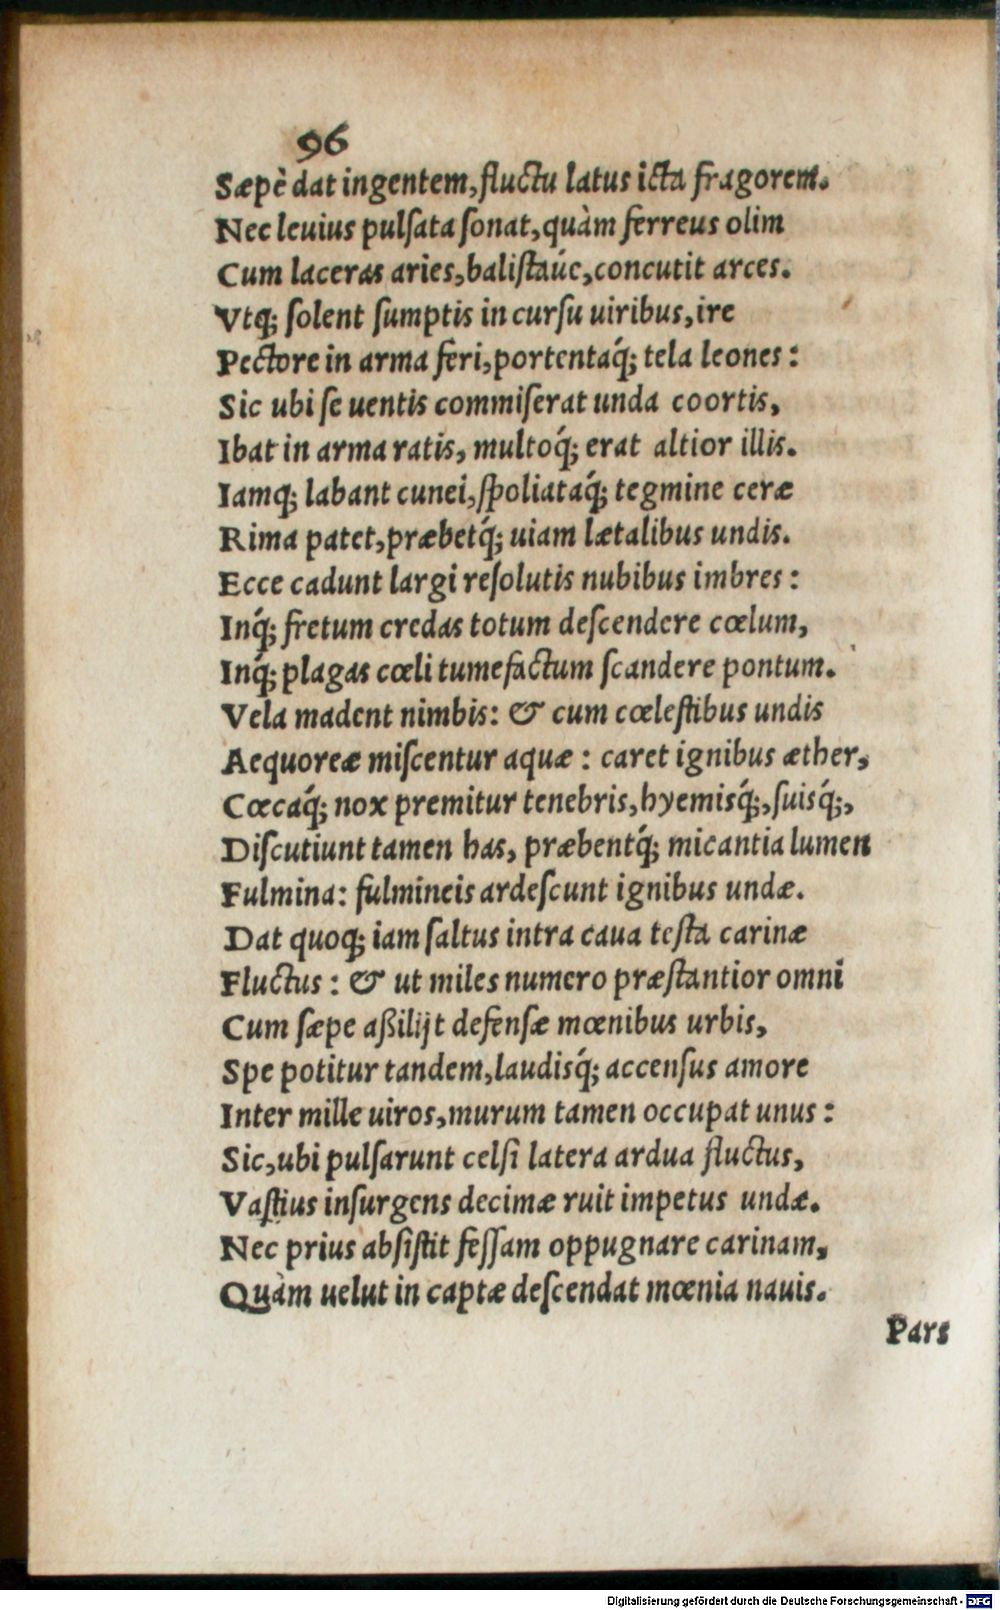 96
Sæpè dat ingentem, fluctu latus icta fragorem.
Nec leuius pulſata ſonat, quàm ferreus olim
Cum laceras aries, baliſtaúe, concutit arces.
Vtq; ſolent ſumptis in curſu uiribus, ire
Pectore in arma feri, portentaq́; tela leones:
Sic ubi ſe uentis commiſerat unda coortis,
Ibat in arma ratis, multoq́; erat altior illis.
Iamq; labant cunei, ſpoliataq́; tegmine ceræ
Rima patet, præbetq́; uiam lætalibus undis.
Ecce cadunt largi reſolutis nubibus imbres:
Inq́; fretum credas totum deſcendere cœlum,
Inq́; plagas cœli tumefactum ſcandere pontum.
Vela madent nimbis: & cum cœleſtibus undis
Aequoreæ miſcentur aquæ: caret ignibus æther,
Cœcaq́; nox premitur tenebris, hyemisq́;, ſuisq́;,
Diſcutiunt tamen has, præbentq́; micantia lumen
Fulmina: fulmineis ardeſcunt ignibus undæ.
Dat quoq; iam ſaltus intra caua teſta carinæ
Fluctus: & ut miles numero præſtantior omni
Cum ſæpe aßilijt defenſæ mœnibus urbis,
Spe potitur tandem, laudisq́; accenſus amore
Inter mille uiros, murum tamen occupat unus:
Sic, ubi pulſarunt celſi latera ardua fluctus,
Vaſtius inſurgens decimæ ruit impetus undæ.
Nec prius abſiſtit feſſam oppugnare carinam,
Quàm uelut in captæ deſcendat mœnia nauis.
Pars
Digitalisierung gefördert durch die Deutsche Forschungsgemeinschaft - DFG